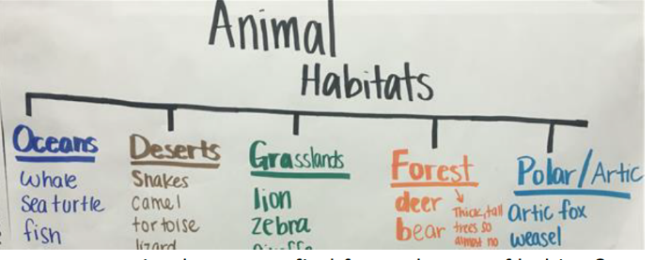 Animal
Habitats
Oceans
whale
sea turtle
fish
Deserts
Snakes
camel
tortoise
lizard
Grasslands
lion
zebra
Giraffe
Forest
deer
bear
Thick, tall
trees so
almost no
Polar/Artic
Artic fox
weasel